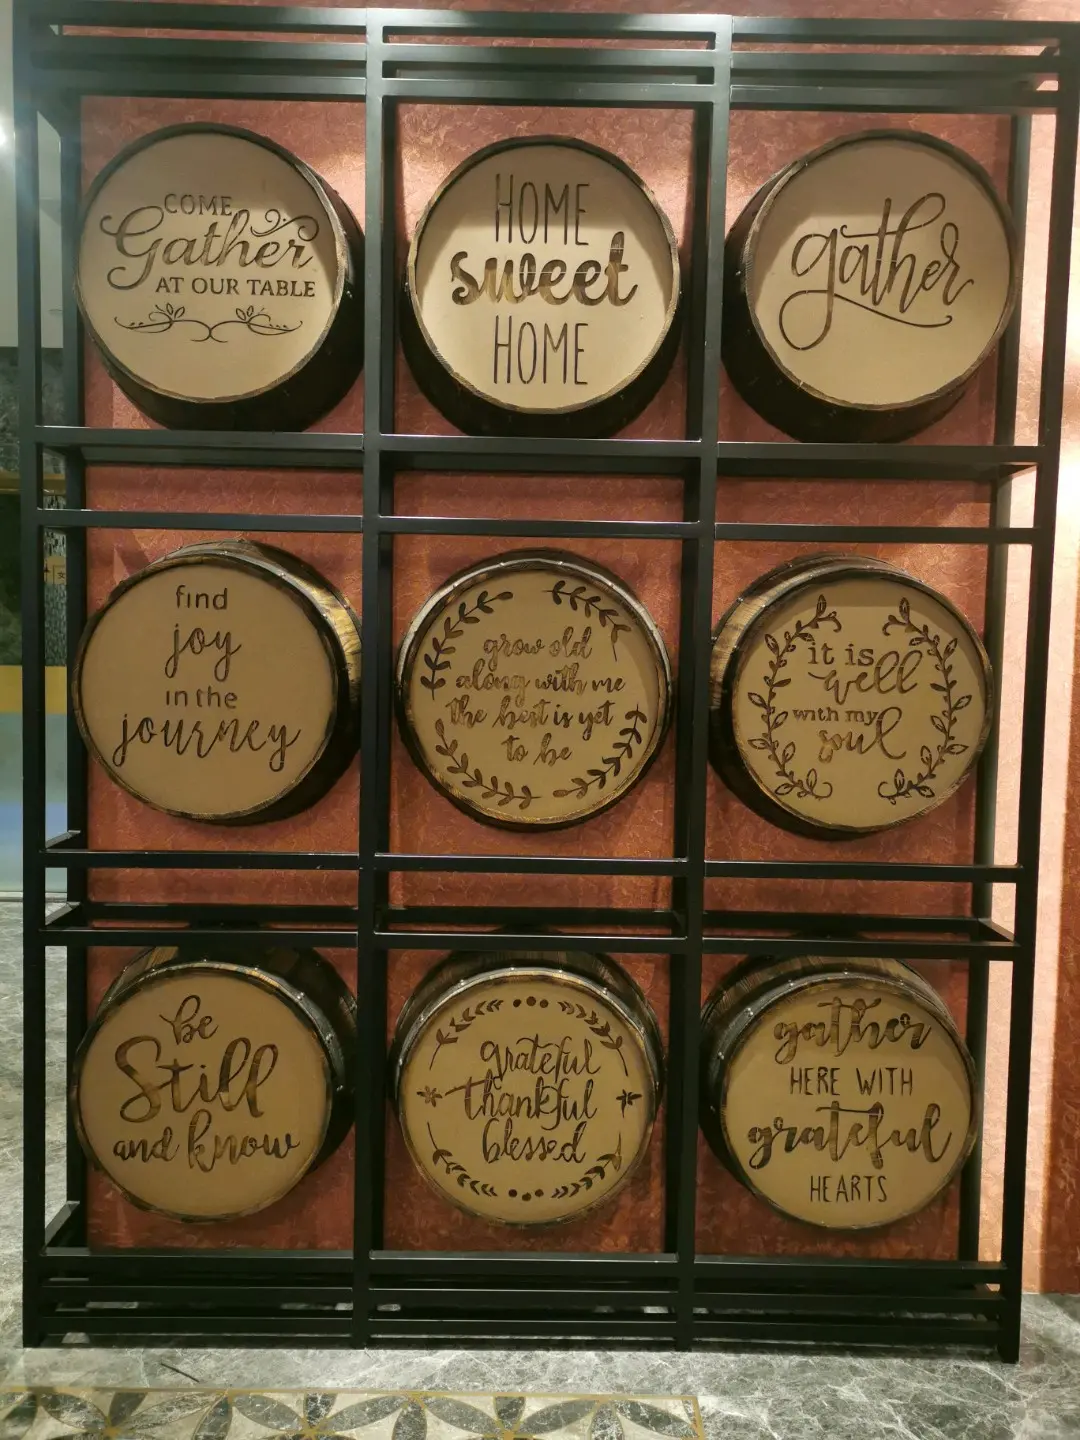 COME
Gather
AT OUR TABLE
HOME
sweet
HOME
gather
find
joy
in the
journey
grow old
along with me
the best is yet
to be
it is
well
with my
soul
be
Still
and know
grateful
thankful
blessed
gather
HERE WITH
grateful
HEARTS